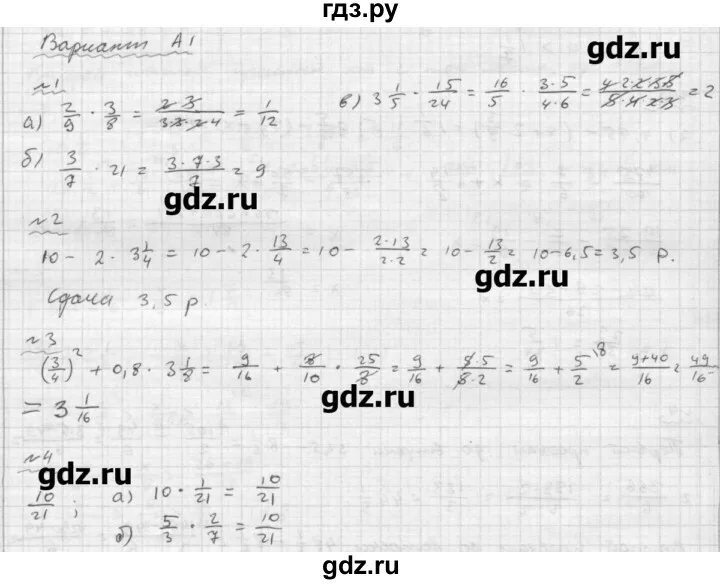 гдз.ру
Вариант А1
gdz.ru
№1
а) 2/9 · 3/8 = 2·3/3·3·2·4 = 1/12
в) 3 1/5 · 15/24 = 16/5 · 3·5/4·6 = 4·2·2·3·5/5·4·2·3 = 2
б) 3/7 · 21 = 3·7·3/7 = 9
gdz.ru
№2
10 - 2 · 3 1/4 = 10 - 2 · 13/4 = 10 - 2·13/2·2 = 10 - 13/2 = 10 - 6,5 = 3,5 р.
gdz.ru
Сдача 3,5 р.
№3
(3/4)² + 0,8 · 3 1/8 = 9/16 + 8/10 · 25/8 = 9/16 + 5·5/5·2 = 9/16 + 5/2 \8 = 9+40/16 = 49/16
= 3 1/16
gdz.ru
№4
gdz.ru
10/21 ; а) 10 · 1/21 = 10/21
б) 5/3 · 2/7 = 10/21
gdz.ru
гдз.ру